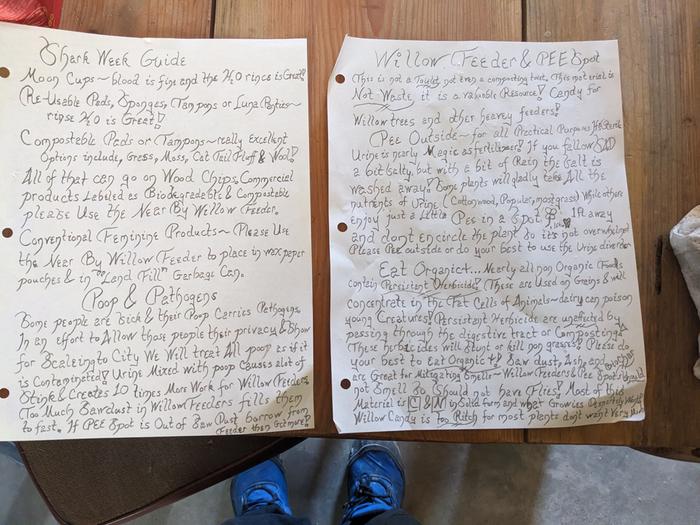 Shark Week Guide
Moon Cups ~ blood is fine and the H2O rinces is Great!
Re-Usable Pads, Sponges, Tampons or Luna Panties ~
rinse H2O is Great!
Compostable Pads or Tampons ~ really Excellent
Options include, Grass, Moss, Cat Tail Fluff & Wool!
All of that can go on Wood Chips, Commercial
products Labeled as Biodegradable & Compostable
please Use the Near By Willow Feeder.
Conventional Feminine Products ~ Please Use
the Near By Willow Feeder to place in wax paper
pouches & in "Land Fill" Garbage Can.
Poop & Pathogens
Some people are Sick & their Poop Carries Pathogens.
In an effort to Allow those people their privacy & Show
for Scaleing to City We Will treat All poop as if it
is Contaminated! Urine Mixed with poop causes alot of
Stink & Creates 10 times More Work for Willow Feeders
Too Much Sawdust in Willow Feeders fills them
to fast. If PEE Spot is Out of Saw Dust borrow from
Feeder then Get more!
Willow Feeder & PEE Spot
This is not a Toylet not even a composting twit. This material is
Not Waste, it is a valuable Resource! Candy for
Willow trees and other heavey feeders!
Pee Outside ~ for all Practical Purposes It's Sterile
Urine is nearly Magic as fertilizer! If you fallow SAD
a bit Salty, but with a bit of Rain the Salt is
washed away. Some plants will gladly take All the
nutrents of Urine (Cottonwood, Popular, most grass) While others
enjoy just a Little Pee in a Spot 1ft away
and dont encircle the plant So it's not overwhelmed
Please Pee outside or do your best to use the Urine diverter
Eat Organic+... Nearly all non Organic Foods
contain Persistent Herbicide! These are Used on Grains & will
concentrate in the Fat Cells of Animals ~ dairy can poison
young Creatures! Persistent Herbicides are unaffected by
passing through the digestive tract or Composting
These herbicides will Stunt or kill non grasses! Please do
your best to Eat Organic+! Saw dust, Ash, and
are Great for Mitigating Smells ~ Willow Feeders & Pee Spots should
not Smell So Should not have Flies! Most of this
Material is C & N in Solid Form and what Grows
Willow Candy is too Ritch for most plants dont want Very Much